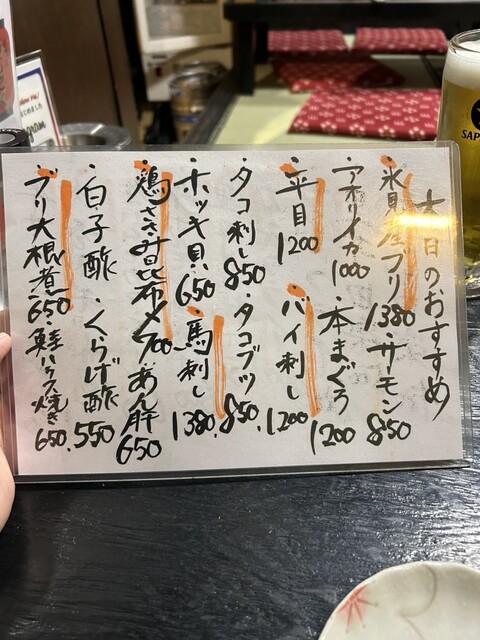 本日のおすすめ
・氷見産ブリ 1380 ・サーモン 850
・アオリイカ 1000 ・本まぐろ 1200
・平目 1200 ・バイ刺し 1200
・タコ刺し 850 ・タコブツ 850
・ホッキ貝 650 ・馬刺し 1380
・鶏ささみ昆布〆 700 ・あん肝 650
・白子酢 ・くらげ酢 550
・ブリ大根煮 650 ・鮭ハラス焼き 650
SAP
gram
はじめました